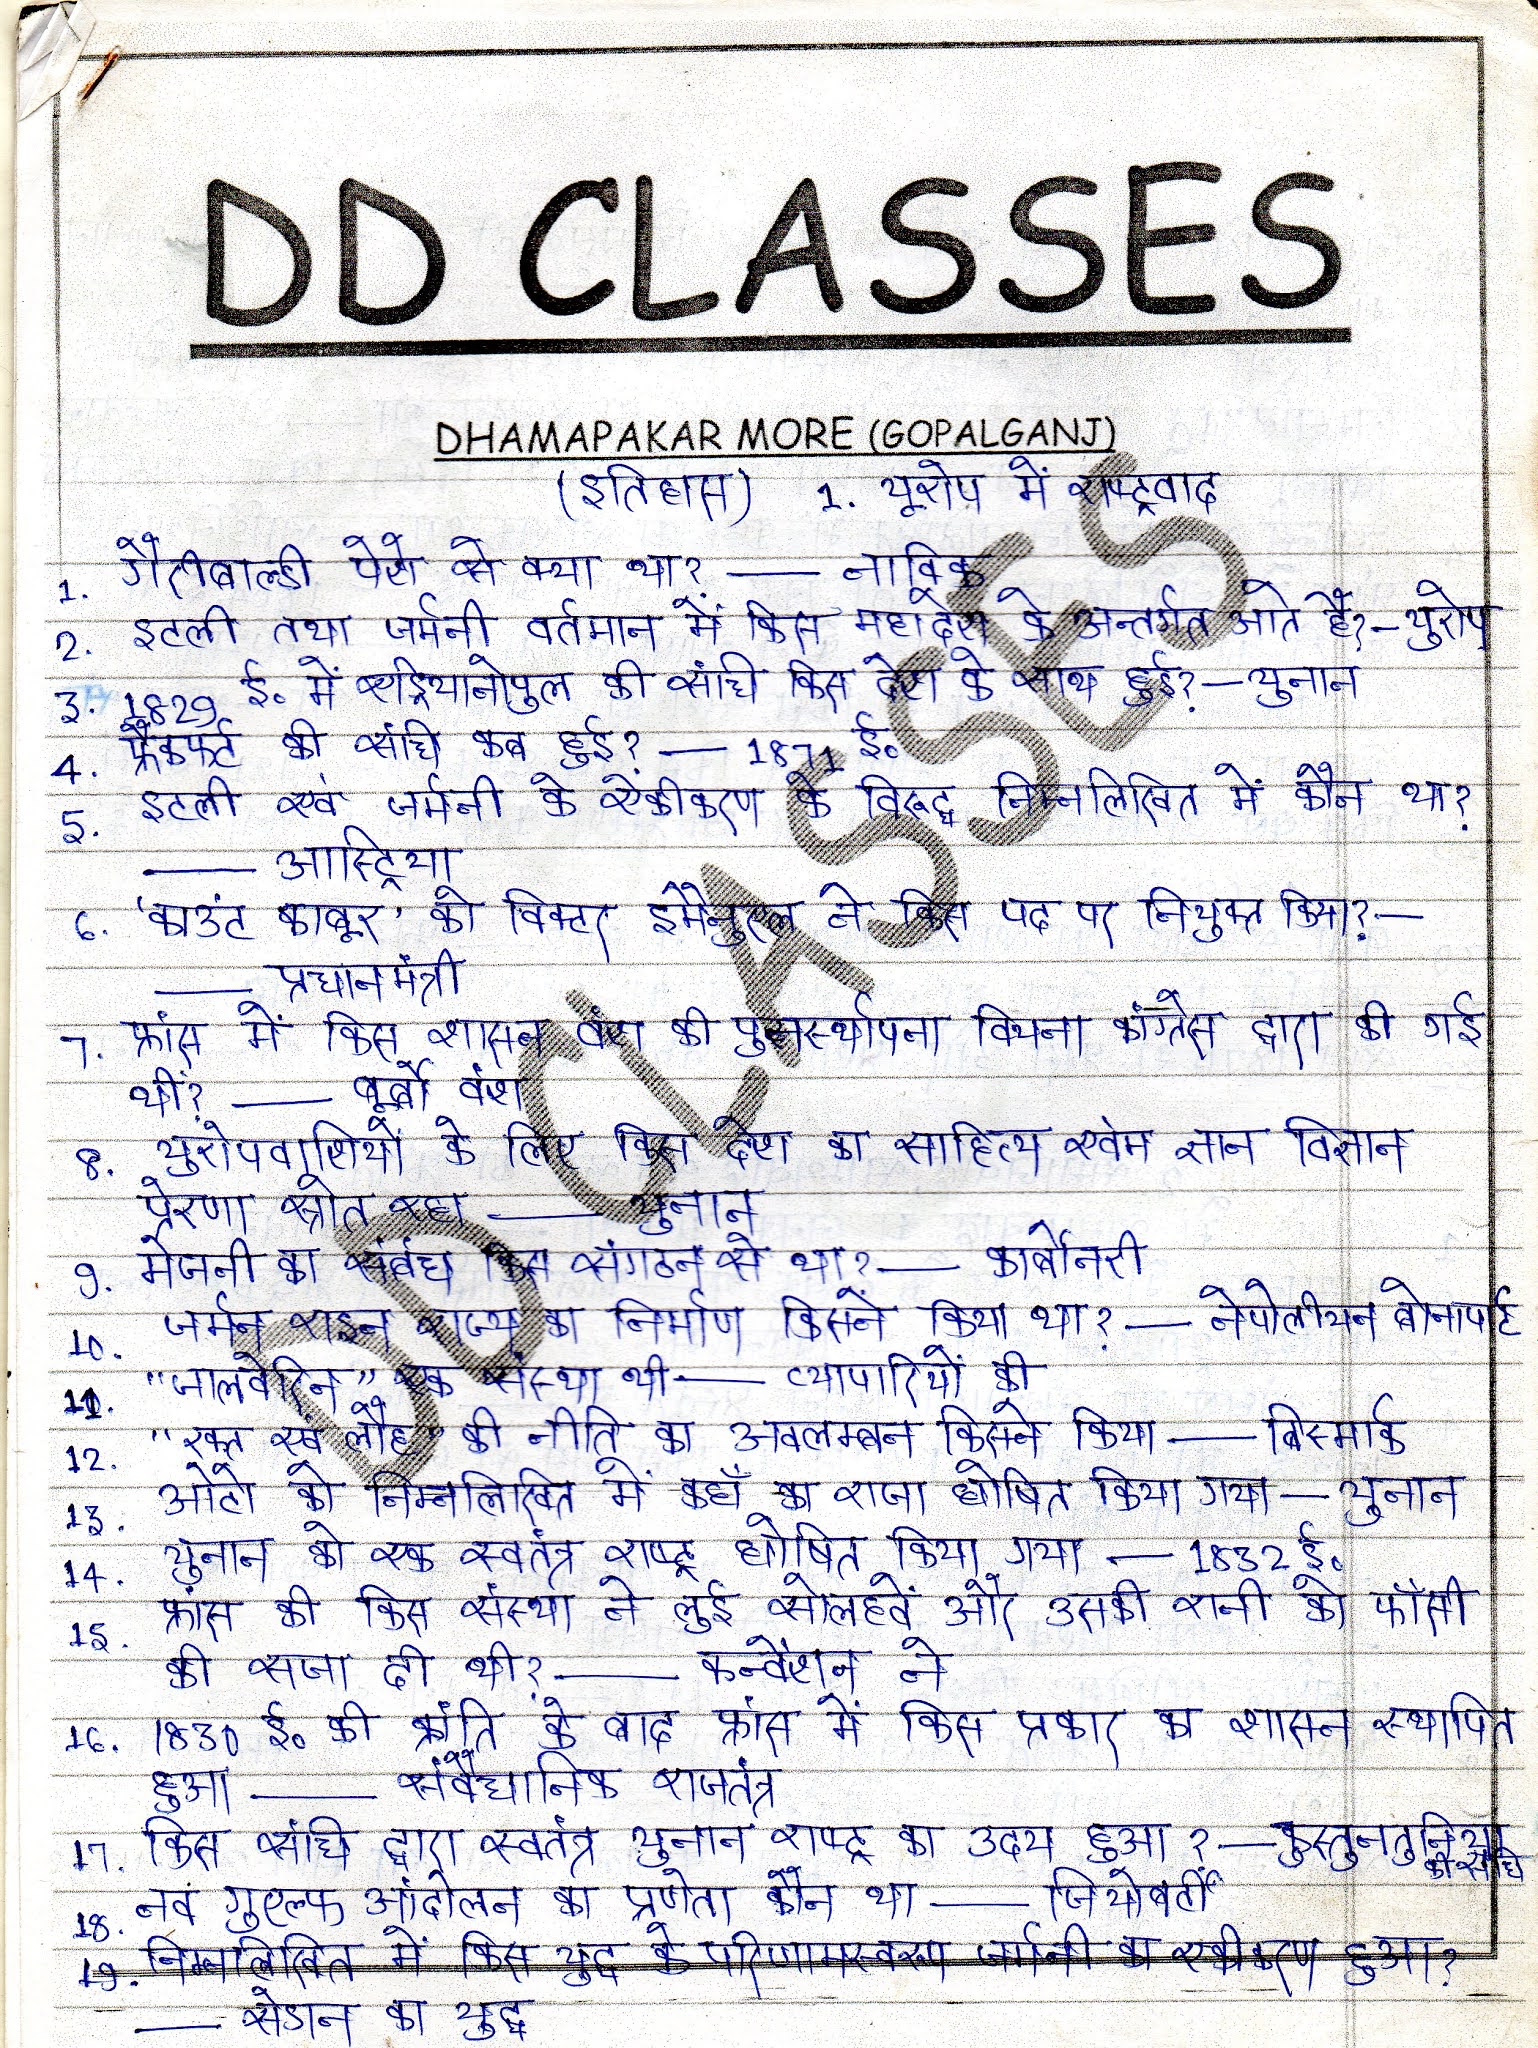 DD CLASSES
DHAMAPAKAR MORE (GOPALGANJ)
(इतिहास) 1. यूरोप में राष्ट्रवाद
1. गैरीबाल्डी पेशे से क्या था? — नाविक
2. इटली तथा जर्मनी वर्तमान में किस महादेश के अन्तर्गत आते है? — युरोप
3. 1829 ई॰ में एड्रियानोपुल की संधि किस देश के साथ हुई? — युनान
4. फ्रैंकफर्ट की संधि कब हुई? — 1871 ई॰
5. इटली एवं जर्मनी के एकीकरण के विरूद्ध निम्नलिखित में कौन था?
— आस्ट्रिया
6. 'काउंट काबूर' को विक्टर इमैनुएल ने किस पद पर नियुक्त किया? —
— प्रधानमंत्री
7. फ्रांस में किस शासन वंश की पुनर्स्थापना वियना कांग्रेस द्वारा की गई
थीं? — बूर्बों वंश
8. युरोपवाशियों के लिए किस देश का साहित्य एवंम ज्ञान विज्ञान
प्रेरणा स्रोत रहा — युनान
9. मेजनी का संबंध किस संगठन से था? — कार्बोनरी
10. जर्मन राइन राज्य का निर्माण किसने किया था? — नेपोलीयन बोनापार्ट
11. "जालवेरिन" एक संस्था थी — व्यापारियों की
12. "रक्त एवं लौह" की नीति का अवलम्बन किसने किया — बिस्मार्क
13. ओटो को निम्नलिखित में कहाँ का राजा घोषित किया गया — युनान
14. युनान को एक स्वतंत्र राष्ट्र घोषित किया गया — 1832 ई॰
15. फ्रांस की किस संस्था ने लुई सोलहवें और उसकी रानी को फाँसी
की सजा दी थी? — कन्वेंशन ने
16. 1830 ई॰ की क्रांति के बाद फ्रांस में किस प्रकार का शासन स्थापित
हुआ — संवैधानिक राजतंत्र
17. किस संधि द्वारा स्वतंत्र युनान राष्ट्र का उदय हुआ? — कुस्तुनतुनिया
की संधि
18. नवं गुएल्फ आंदोलन का प्रणेता कौन था — जियोबर्ती
19. निम्नलिखित में किस युद्ध के परिणामस्वरूप जर्मनी का एकीकरण हुआ?
— सेडान का युद्ध
DD CLASSES